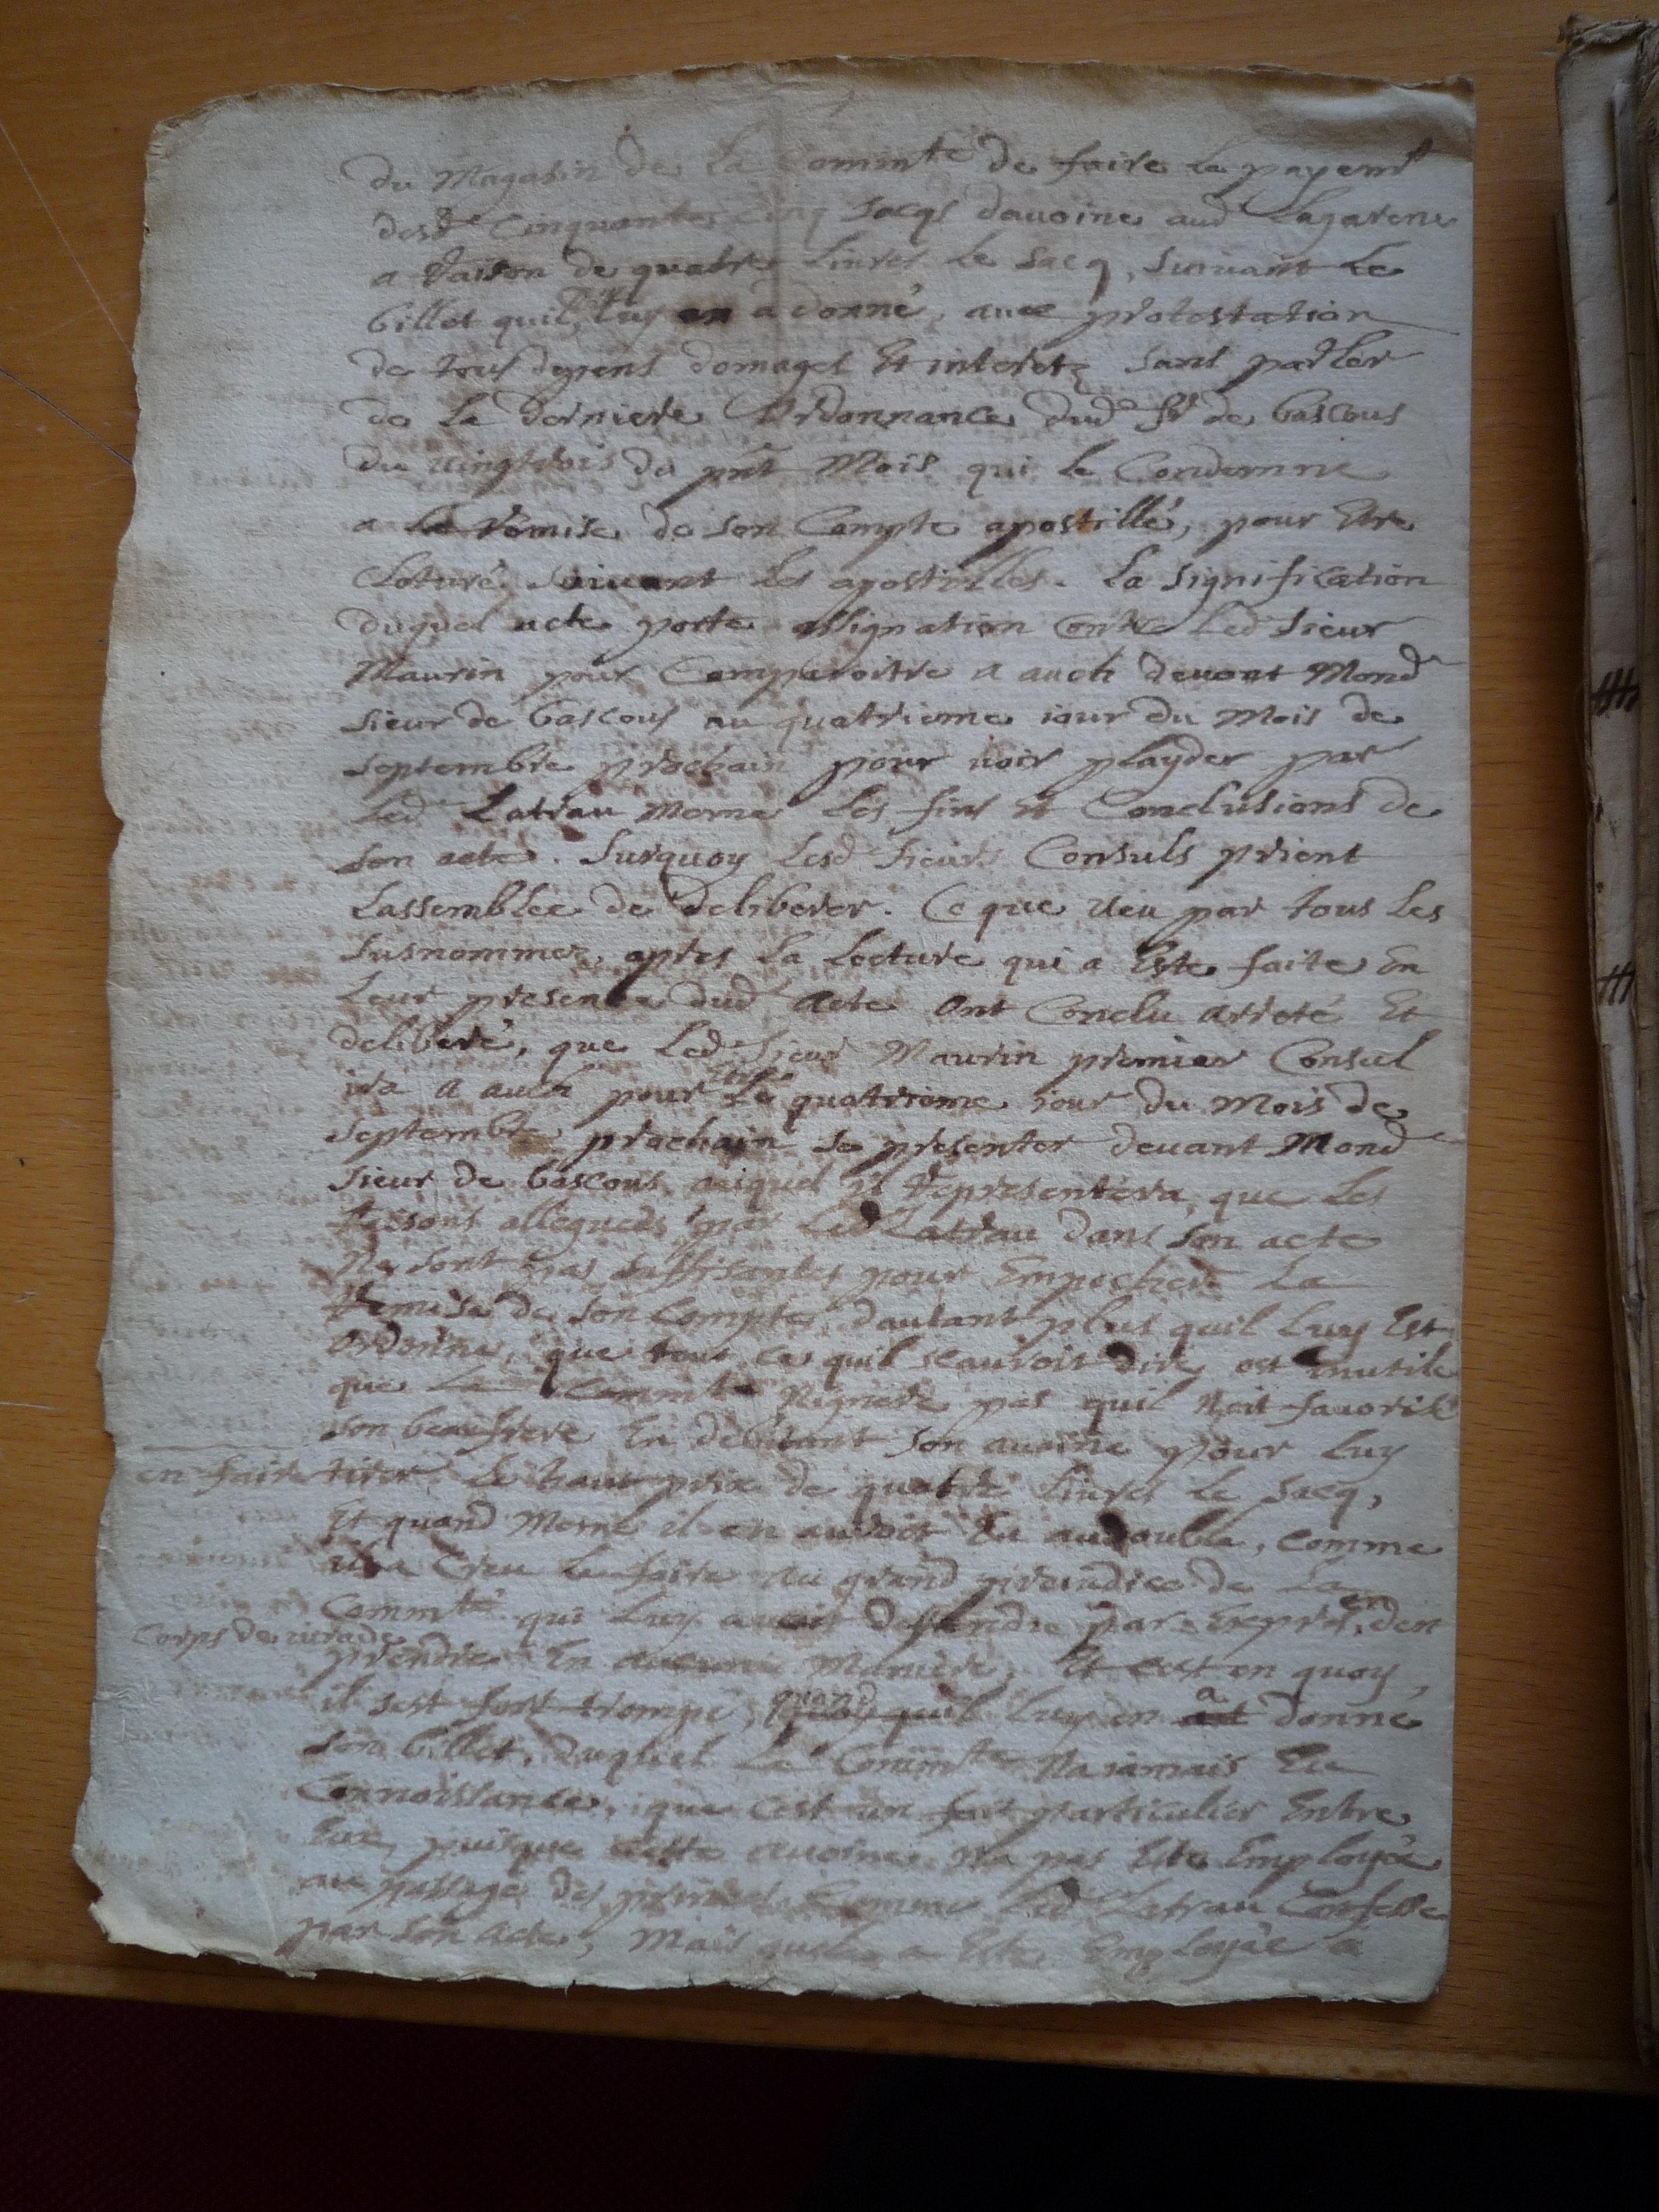 du Magasin de la Commté de faire le payemt
desd Cinquante cinq sacqs dauoine aud Lagarene
a raison de quatre liures le sacq, suiuant le
billet quil luy en a donné, auec protestation
de tous depens domages Et interetz sans parler
de la derniere Ordonnance dud sr de bascous
du uingttrois du pnt Mois qui le Condemne
a la remise de son Compte apostillé, pour Etre
Cloturé suiuant les apostilles. La signification
duquel acte porte assignation contre Led sieur
Maurin pour Comparoitre a auch deuant Mond
sieur de bascous au quatrieme iour du Mois de
septembre prochain pour uoir playder par
Led Latrau meme les fins et Conclusions de
son acte. Surquoy Lesd sieurs Consuls prient
Lassemblée de deliberer. Ce que ueu par tous les
susnommez, apres la Lecture qui a Este faite En
Leur presence dud acte ont Conclu arreté Et
deliberé, que Led Sieur Maurin premier Consul
ira a auch pour le quatrieme iour du Mois de
septembre prochain se presenter deuant Mond
sieur de bascous auquel il representera, que les
raisons alleguees par Led Latrau dans son acte
Ne sont pas suffisantes pour Empecher La
remise de son Compte, dautant plus quil luy Est
ordonné, que tout ce quil scauroit dire est inutile
que La Commté Nignore pas quil N'ait fauorisé
son beaufrere En debitant son auoine pour Luy
en faire tirer le haut prix de quatre liures le sacq,
Et quand meme il en auroit Eu au double, comme
il a Creu le faire au grand preiudice de La
Commté qui Luy auoit deffendu par Exprés, den
Corps de iurade
prendre En aucune Maniere, Et cest en quoy
il sest fort trompé, quand il Luy en a donné
son billet, duquel La Commté Na iamais Eu
Connoissance, que cest un fait particulier Entre
Eux, puisque cette auoine Na pas Este Employée
au passage des princes Comme Led Latrau Confesse
par son acte, Mais quelle a Este Employée a